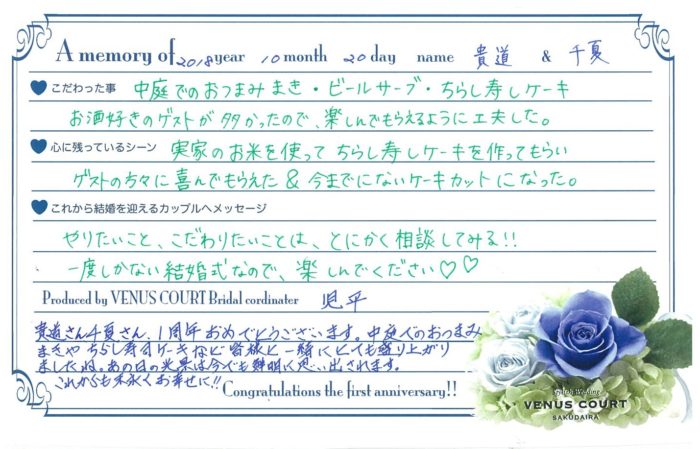 A memory of 2018 year 10 month 20 day name 貴道 & 千夏
こだわった事 中庭でのおつまみまき・ビールサーブ・ちらし寿しケーキ
お酒好きのゲストが多かったので、楽しんでもらえるように工夫した。
心に残っているシーン 実家のお米を使ってちらし寿しケーキを作ってもらい
ゲストの方々に喜んでもらえた & 今までにないケーキカットになった。
これから結婚を迎えるカップルへメッセージ
やりたいこと、こだわりたいことは、とにかく相談してみる!!
一度しかない結婚式なので、楽しんでください♡♡
Produced by VENUS COURT Bridal cordinater 児平
貴道さん千夏さん、1周年おめでとうございます。中庭でのおつまみ
まきやちらし寿司ケーキなど皆様と一緒にとても盛り上がり
ましたね。あの日の光景は今でも鮮明に思い出されます。
これからも末永くお幸せに!!
Congratulations the first anniversary!!
VENUS COURT
SAKUDAIRA